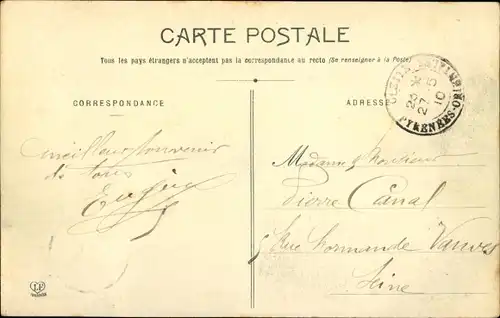 CARTE POSTALE
Tous les pays étrangers n'acceptent pas la correspondance au recto (Se renseigner à la Poste)
CORRESPONDANCE
ADRESSE
PYRÉNÉES-OR
27 - 5
10
meilleur souvenir
de tous
Eugénie
Madame & Monsieur
Pierre Canal
5 Rue Normande Vanves
Seine